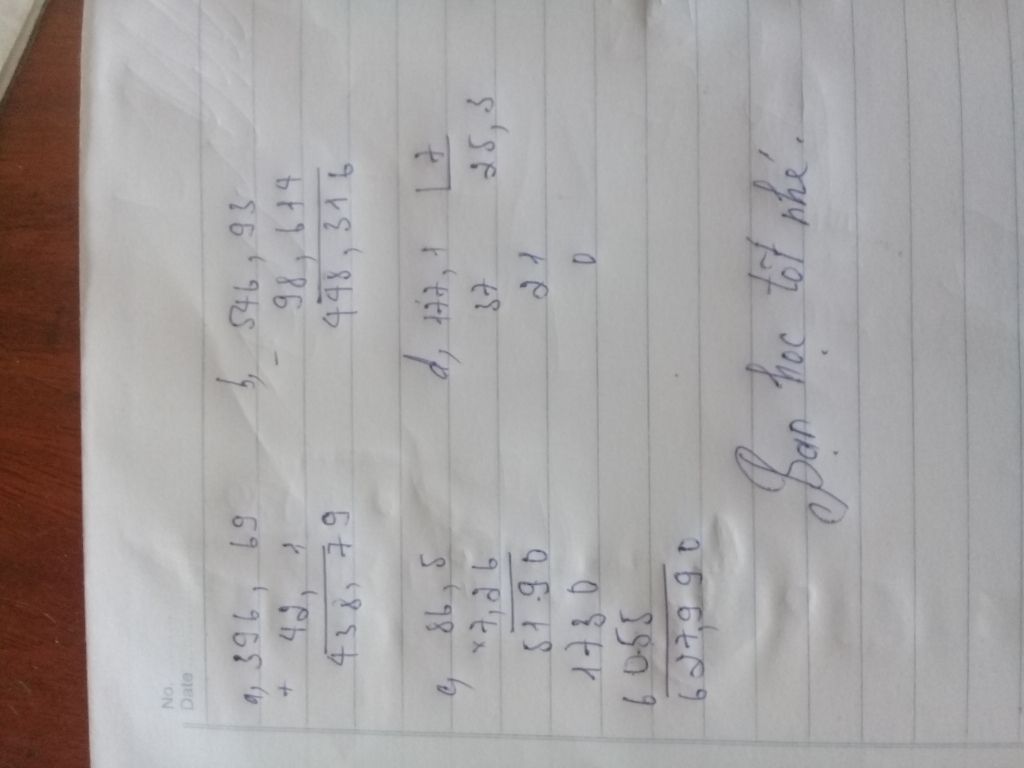 No.
Date
a, 396, 69
+ 42, 1
438, 79
b, 546, 93
- 98, 614
448, 316
c, 86, 5
×7,26
5190
1730
6055
627,990
d, 177, 1 7
37 25, 3
21
0
Bạn học tốt nhé.